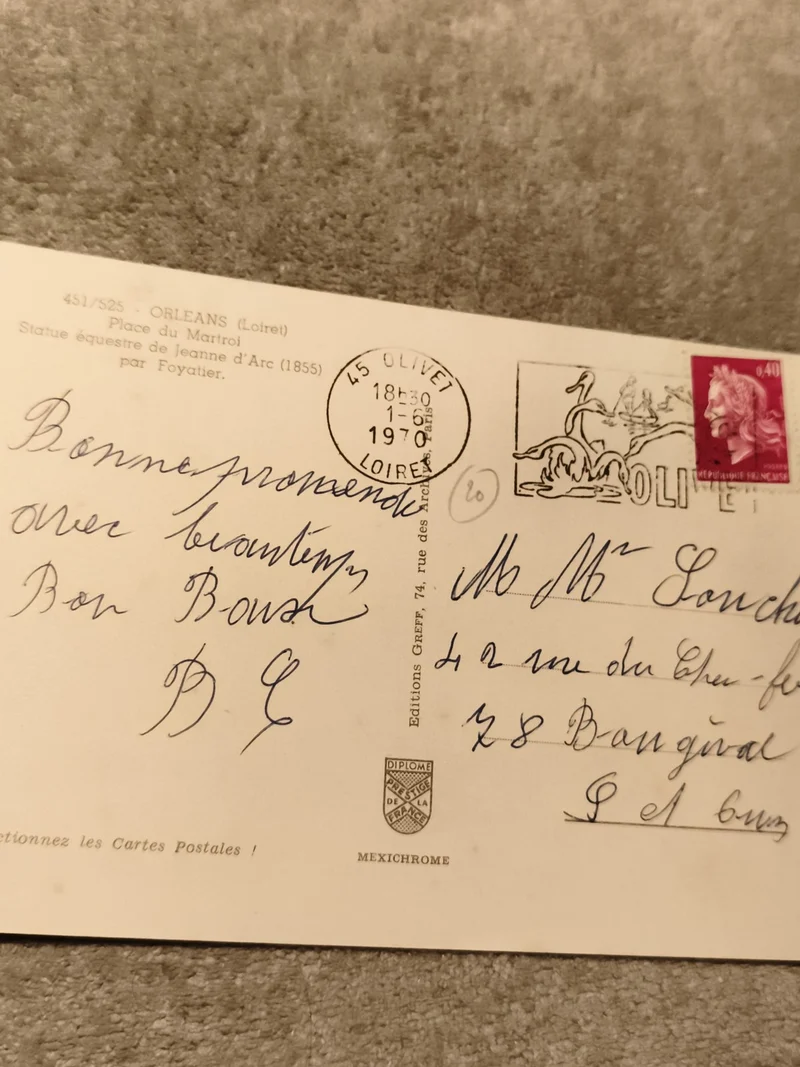 451/525 - ORLEANS (Loiret)
Place du Martroi
Statue équestre de Jeanne d'Arc (1855)
par Foyatier.
45 OLIVET
18h30
1-6
1970
LOIRET
OLIVET
0,40
RÉPUBLIQUE FRANÇAISE
20
Bonne promenade
avec beau temps
Bon
B
Editions GREFF, 74, rue des Archives, Paris
M Mr
42 rue du
78 Bougival
S et Oise
DIPLOME
PRESTIGE
DE LA
FRANCE
MEXICHROME
ctionnez les Cartes Postales !